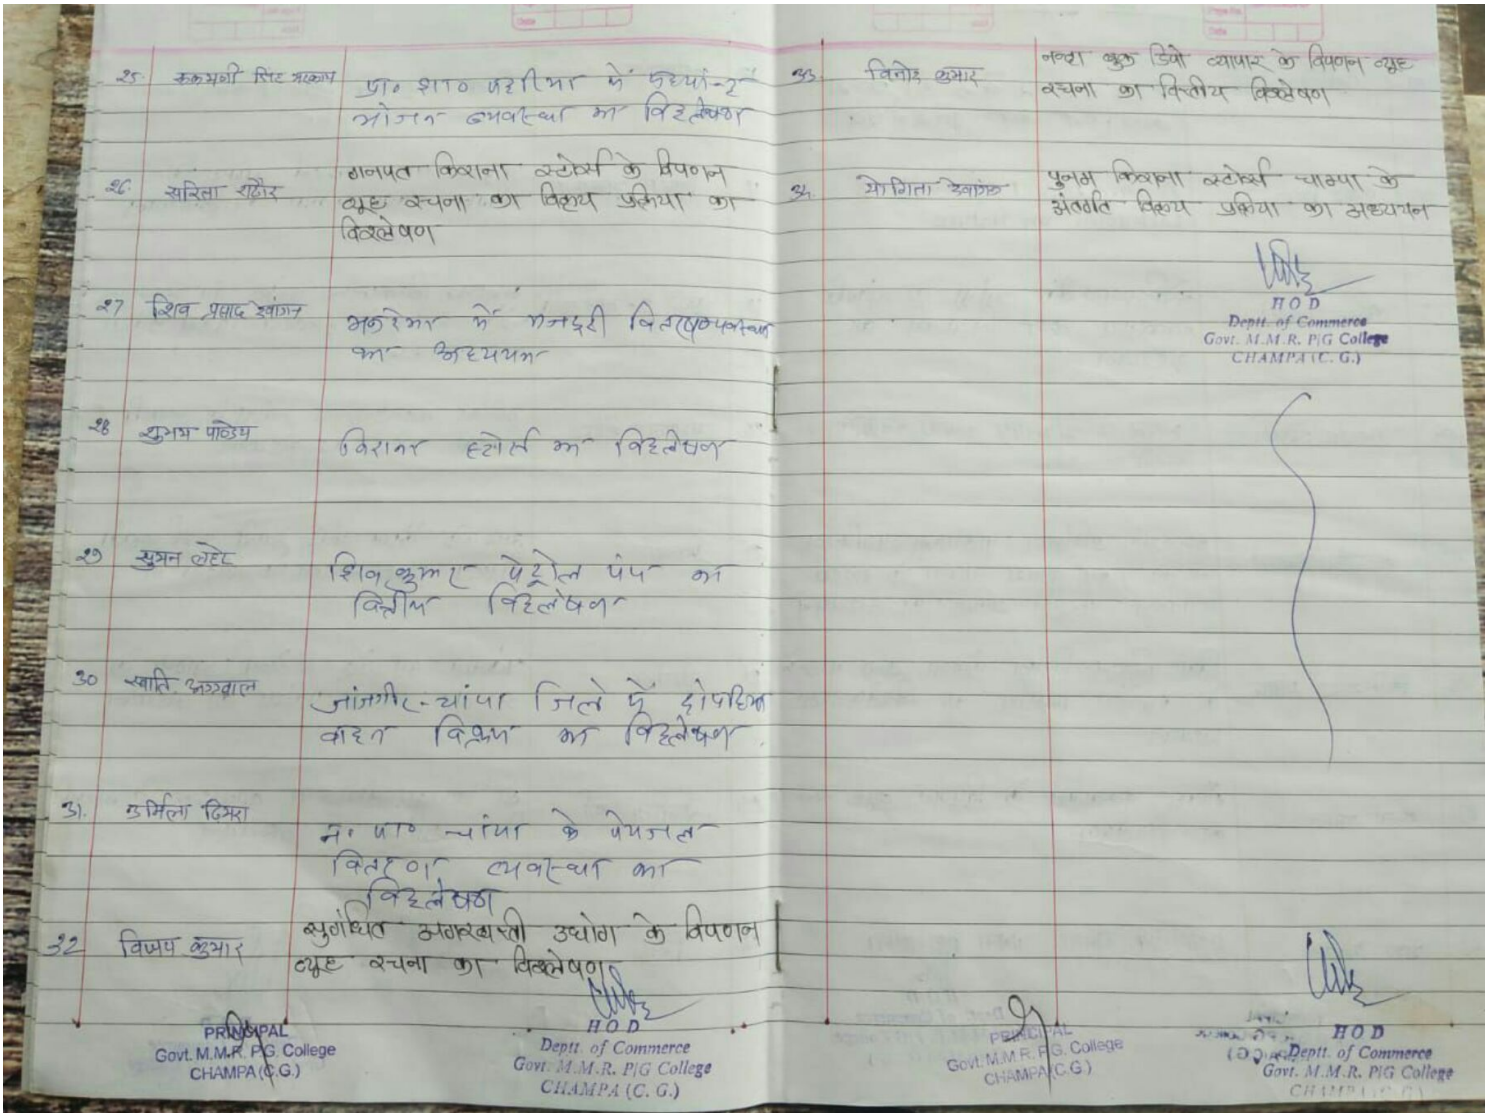 25. रुकमणी सिंह मरकाम
प्रा० शा० में मध्यान्ह
भोजन व्यवस्था का विश्लेषण
26. सरिता राठौर
गनपत किराना स्टोर्स के विपणन
व्यूह रचना का विक्रय प्रक्रिया का
विश्लेषण
27 शिव प्रसाद देवांगन
में मजदूरी वितरण व्यवस्था
का अध्ययन
28 शुभम पाण्डेय
किराना स्टोर्स का विश्लेषण
29 सुमन लहरे
शिव कुमार पेट्रोल पंप का
वित्तीय विश्लेषण
30 स्वाति अग्रवाल
जांजगीर-चांपा जिले में दोपहिया
वाहन विक्रय का विश्लेषण
31. उर्मिला
न० पा० चांपा के पेयजल
वितरण व्यवस्था का
विश्लेषण
32 विजय कुमार
सुगंधित अगरबत्ती उद्योग के विपणन
व्यूह रचना का विश्लेषण
PRINCIPAL
Govt. M.M.R. P.G. College
CHAMPA (C.G.)
H O D
Deptt. of Commerce
Govt. M.M.R. P/G College
CHAMPA (C. G.)
33. विनोद कुमार
बुक डिपो व्यापार के विपणन व्यूह
रचना का वित्तीय विश्लेषण
34. योगिता देवांगन
पुनम किराना स्टोर्स चाम्पा के
अंतर्गत विक्रय प्रक्रिया का अध्ययन
H O D
Deptt. of Commerce
Govt. M.M.R. P/G College
CHAMPA (C. G.)
PRINCIPAL
Govt. M.M.R. P.G. College
CHAMPA (C.G.)
H O D
Deptt. of Commerce
Govt. M.M.R. P/G College
CHAMPA (C. G.)